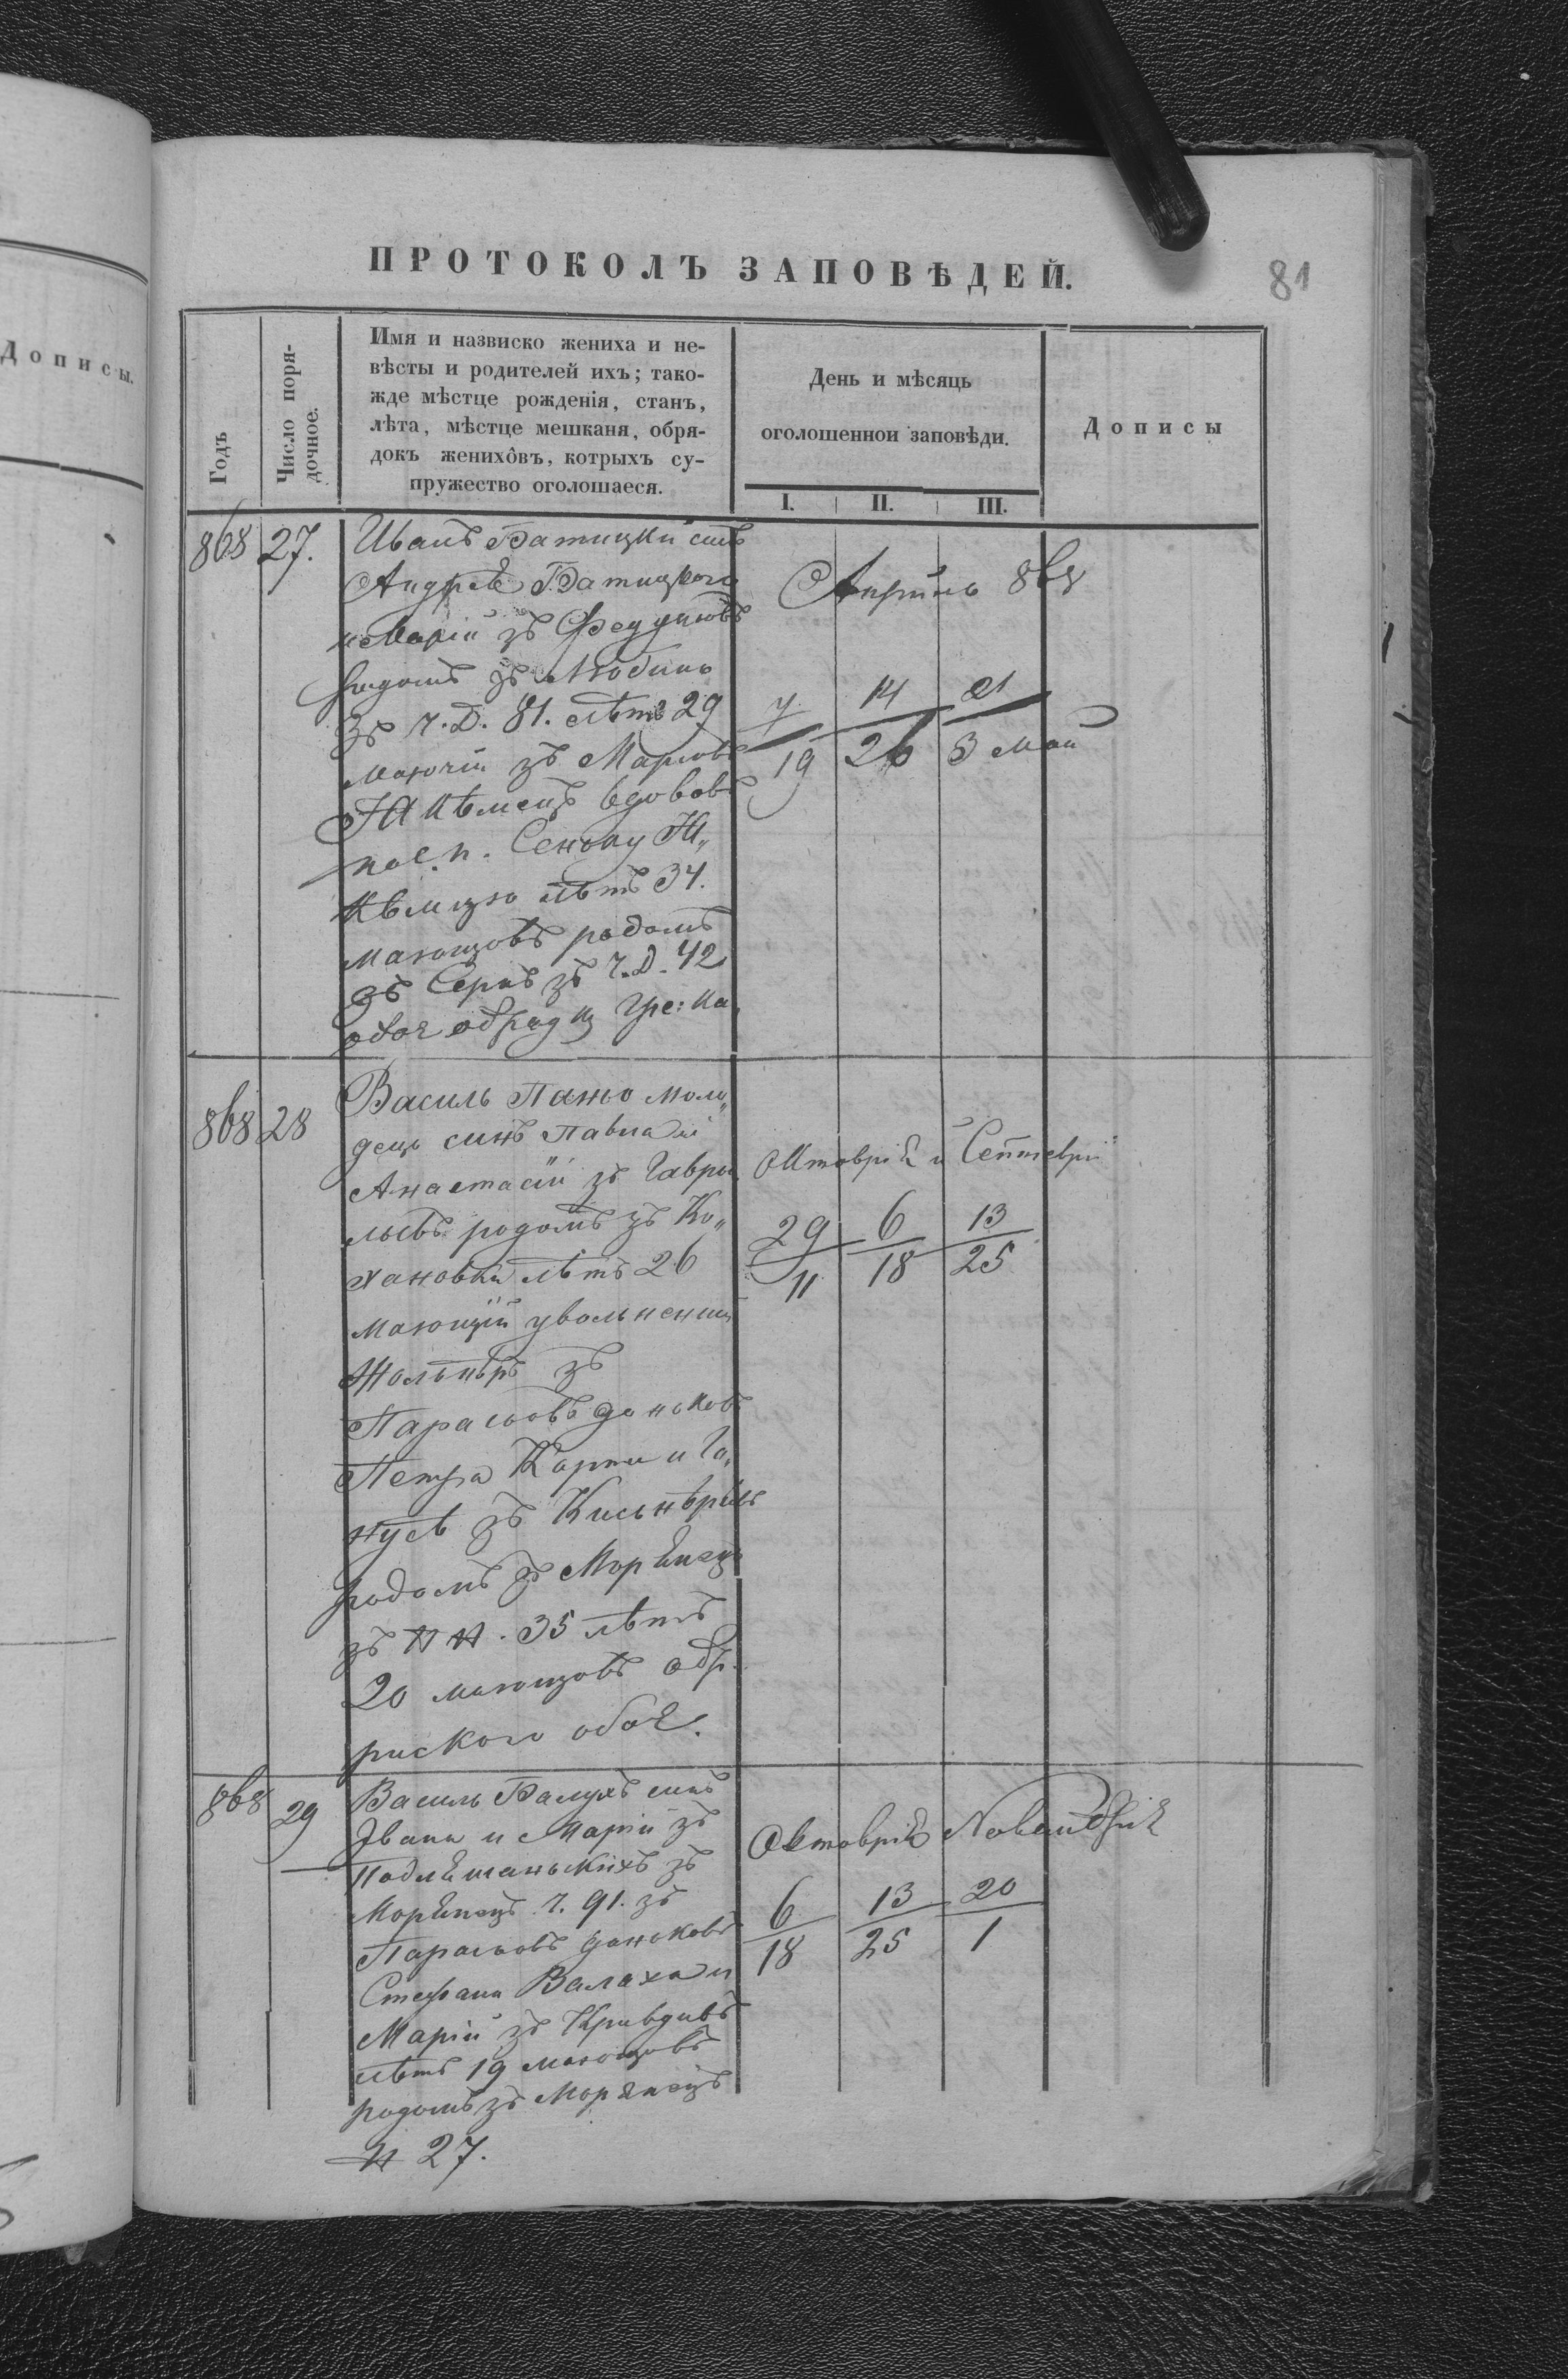 Дописы.
ПРОТОКОЛЪ ЗАПОВѢДЕЙ.
81
Годъ
Число поря-
дочное.
Имя и назвиско жениха и не-
вѣсты и родителей ихъ; тако-
жде мѣстце рожденія, станъ,
лѣта, мѣстце мешканя, обря-
докъ женихôвъ, котрыхъ су-
пружество оголошаеся.
День и мѣсяць
оголошеннои заповѣди.
I. II. III.
Дописы
868 27.
Иванъ Батицкій синъ
Андрея Батицкого
и Маріи зъ
родомъ зъ Любинь
зъ Ч.D. 81. лѣтъ 29
маючій зъ
вдововъ
по с.п. Сеньку
лѣтъ 34.
мающовъ родомъ
зъ зъ Ч.D. 42
обое обряд гре: ка
Априль 868
7 14 21
19 26 3 Май
868 28
Василь Панько моло„
децъ синъ Павла и
Анастасіи зъ Гаври
лывъ родомъ зъ Ко„
хановки лѣтъ 26
мающій увольненый
Жольнѣръ зъ
Параськовъ доньковъ
Петра и Га„
нусѣ зъ
родомъ зъ Морянецъ
зъ N. 35 лѣтъ
20 мающовъ обр.
руского обоє.
Октоврія и Септеврій
29 6 13
11 18 25
868 29
Василь Балухъ синъ
Ивана и Маріи зъ
зъ
Морянецъ ч. 91. зъ
Параськовъ доньковъ
Стефана Валаха и
Маріи зъ Кривдивъ
лѣтъ 19 мающовъ
родомъ зъ Морянецъ
N 27.
Октоврія
6 13 20
18 25 1